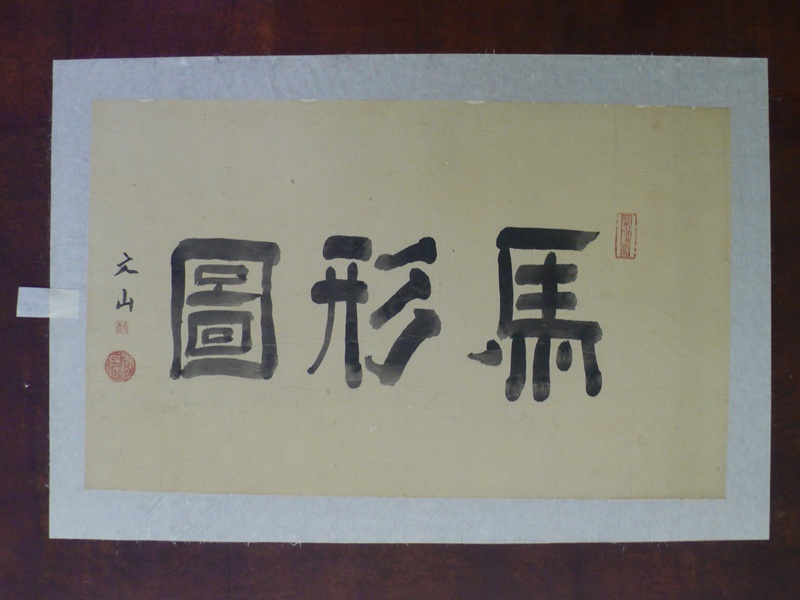 馬形圖
元山